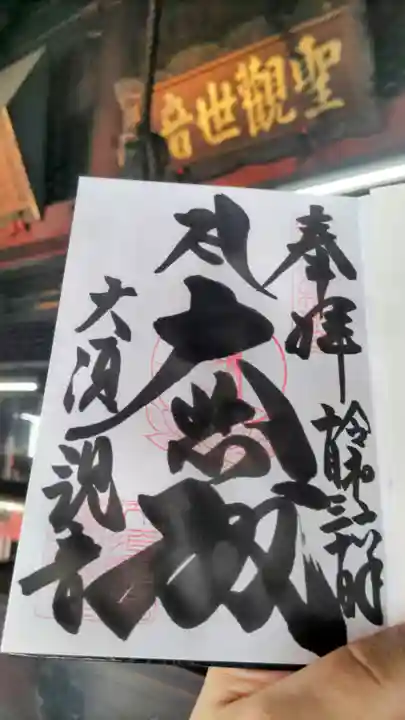 聖觀世音
奉拝
令和三年
大悲殿
大須観音